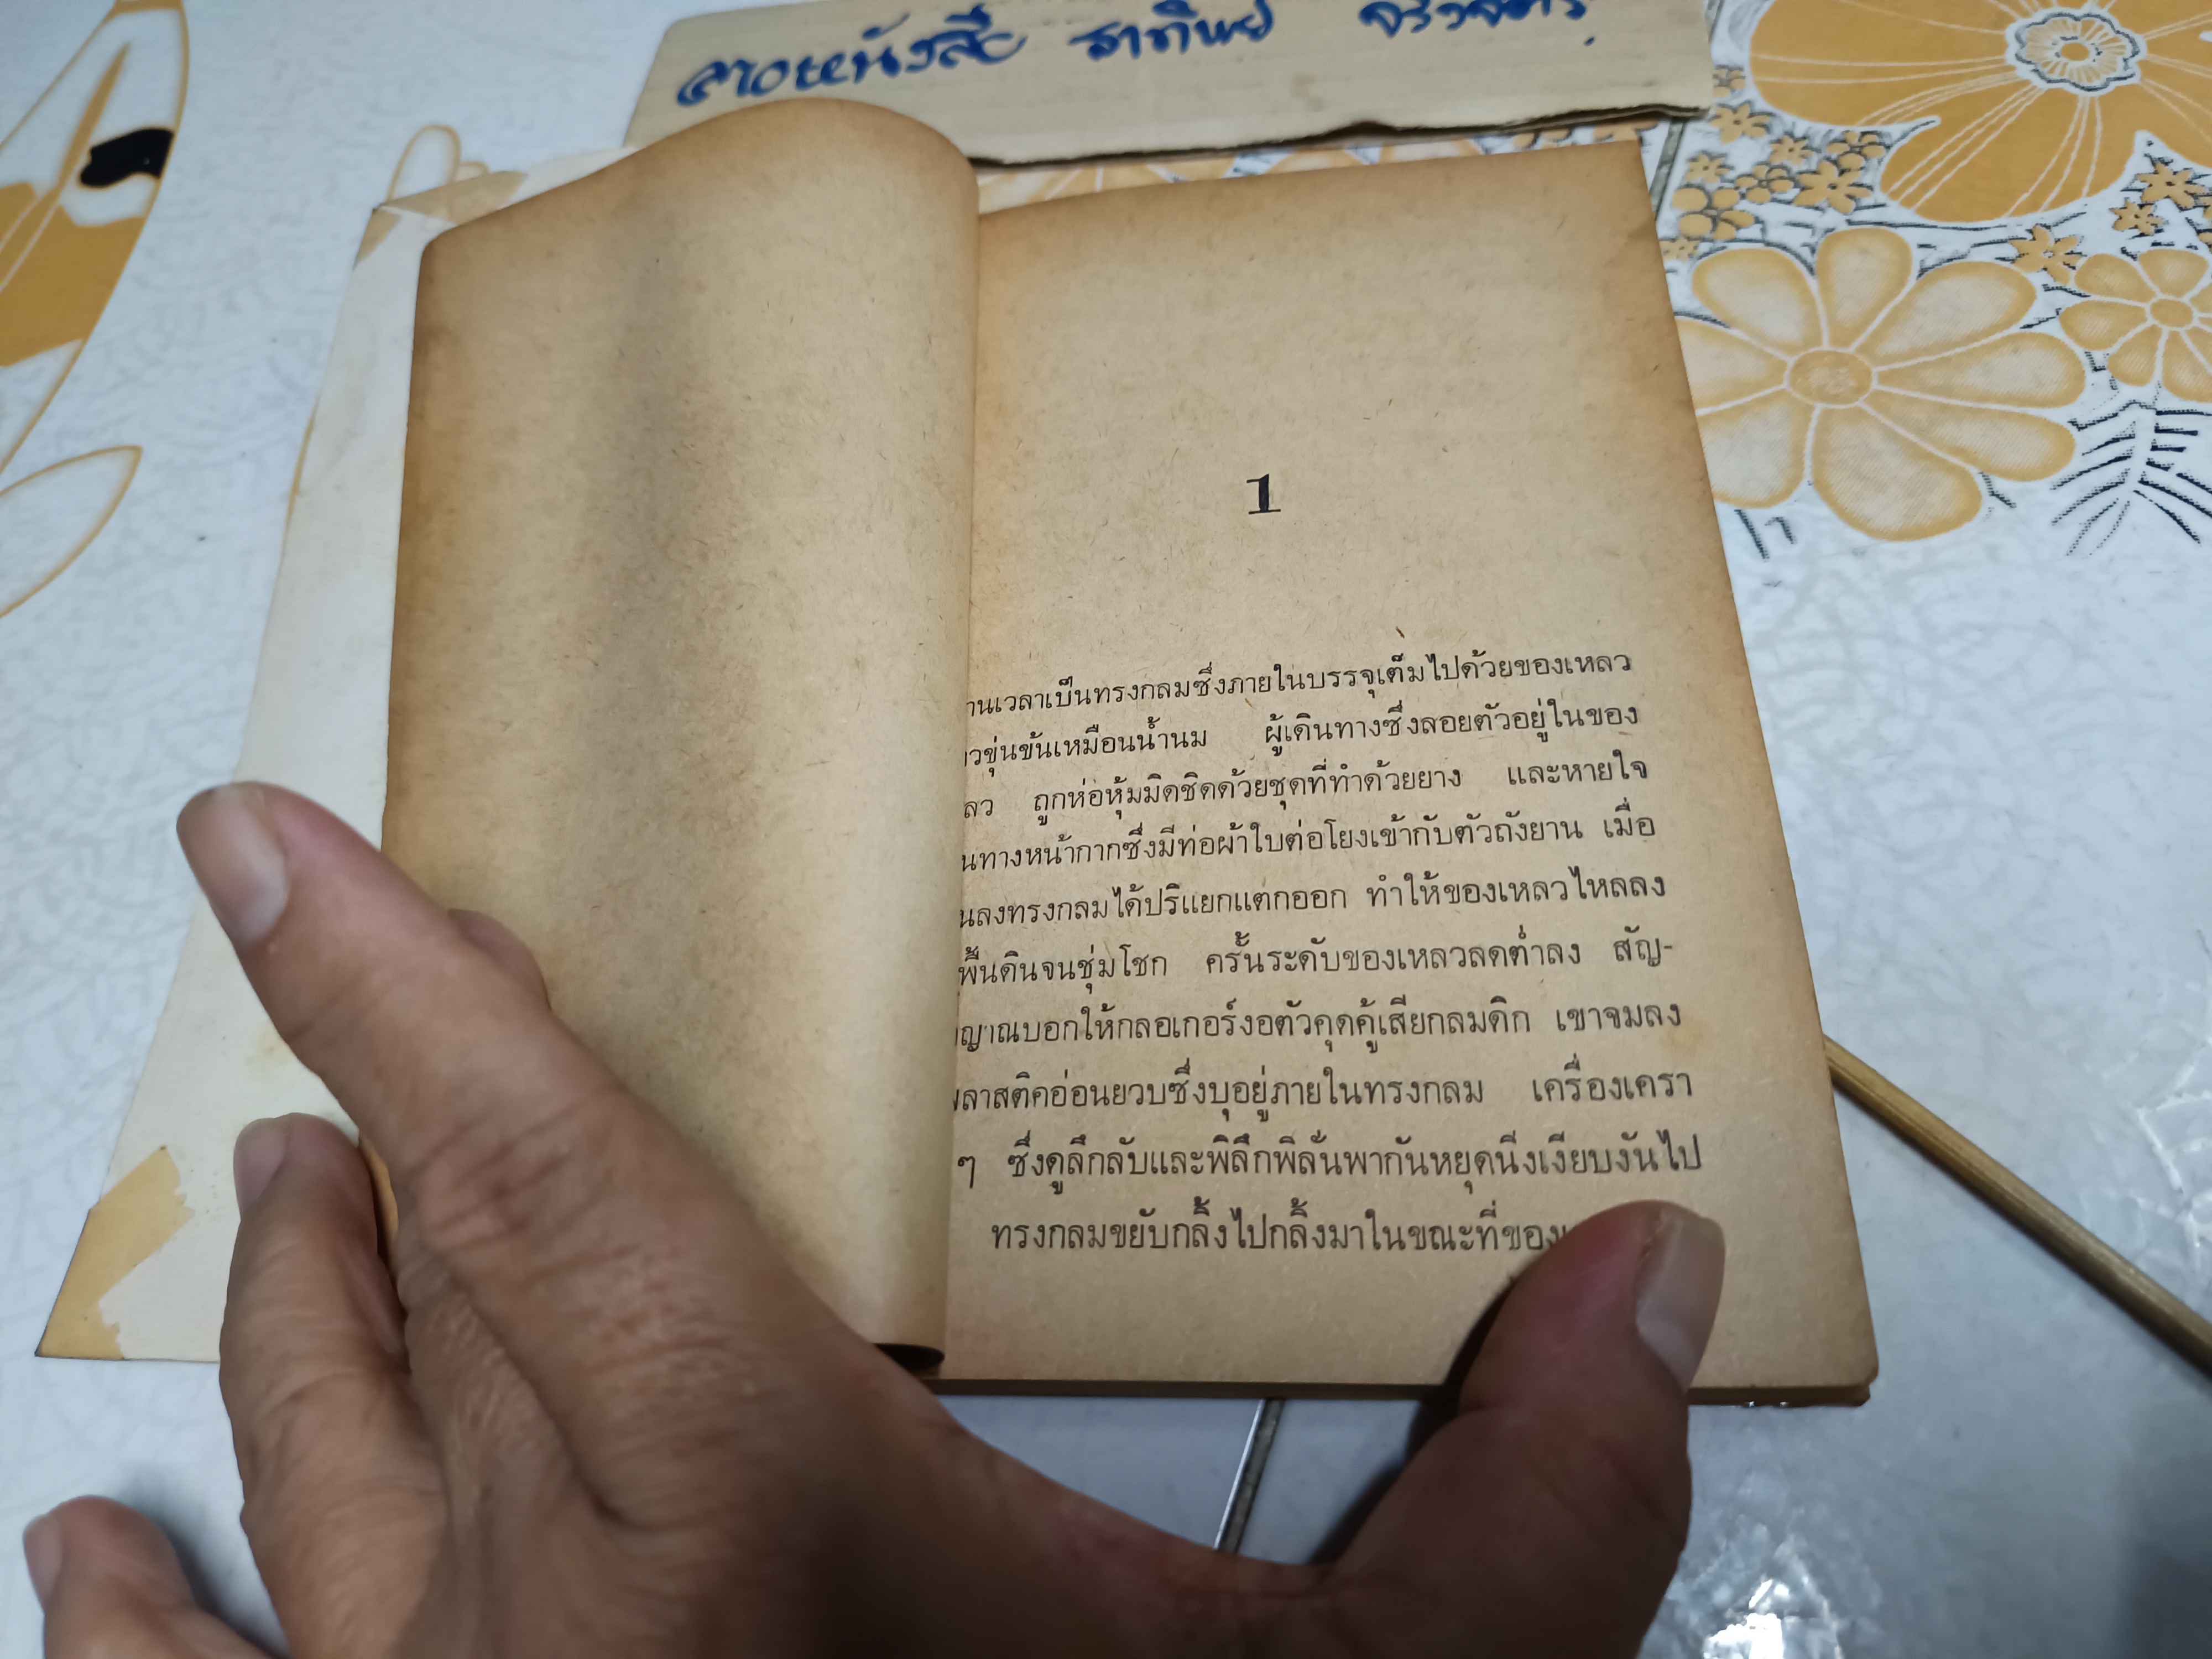 ลายหนังสือ ธาทิพย์
1
านเวลาเป็นทรงกลมซึ่งภายในบรรจุเต็มไปด้วยของเหลว
วขุ่นข้นเหมือนน้ำนม ผู้เดินทางซึ่งลอยตัวอยู่ในของ
ลว ถูกห่อหุ้มมิดชิดด้วยชุดที่ทำด้วยยาง และหายใจ
นทางหน้ากากซึ่งมีท่อผ้าใบต่อโยงเข้ากับตัวถังยาน เมื่อ
นลงทรงกลมได้ปริแยกแตกออก ทำให้ของเหลวไหลลง
พื้นดินจนชุ่มโชก ครั้นระดับของเหลวลดต่ำลง สัญ-
ญาณบอกให้กลอเกอร์งอตัวคุดคู้เสียกลมดิก เขาจมลง
พลาสติคอ่อนยวบซึ่งบุอยู่ภายในทรงกลม เครื่องเครา
ๆ ซึ่งดูลึกลับและพิลึกพิลั่นพากันหยุดนิ่งเงียบงันไป
ทรงกลมขยับกลิ้งไปกลิ้งมาในขณะที่ของ